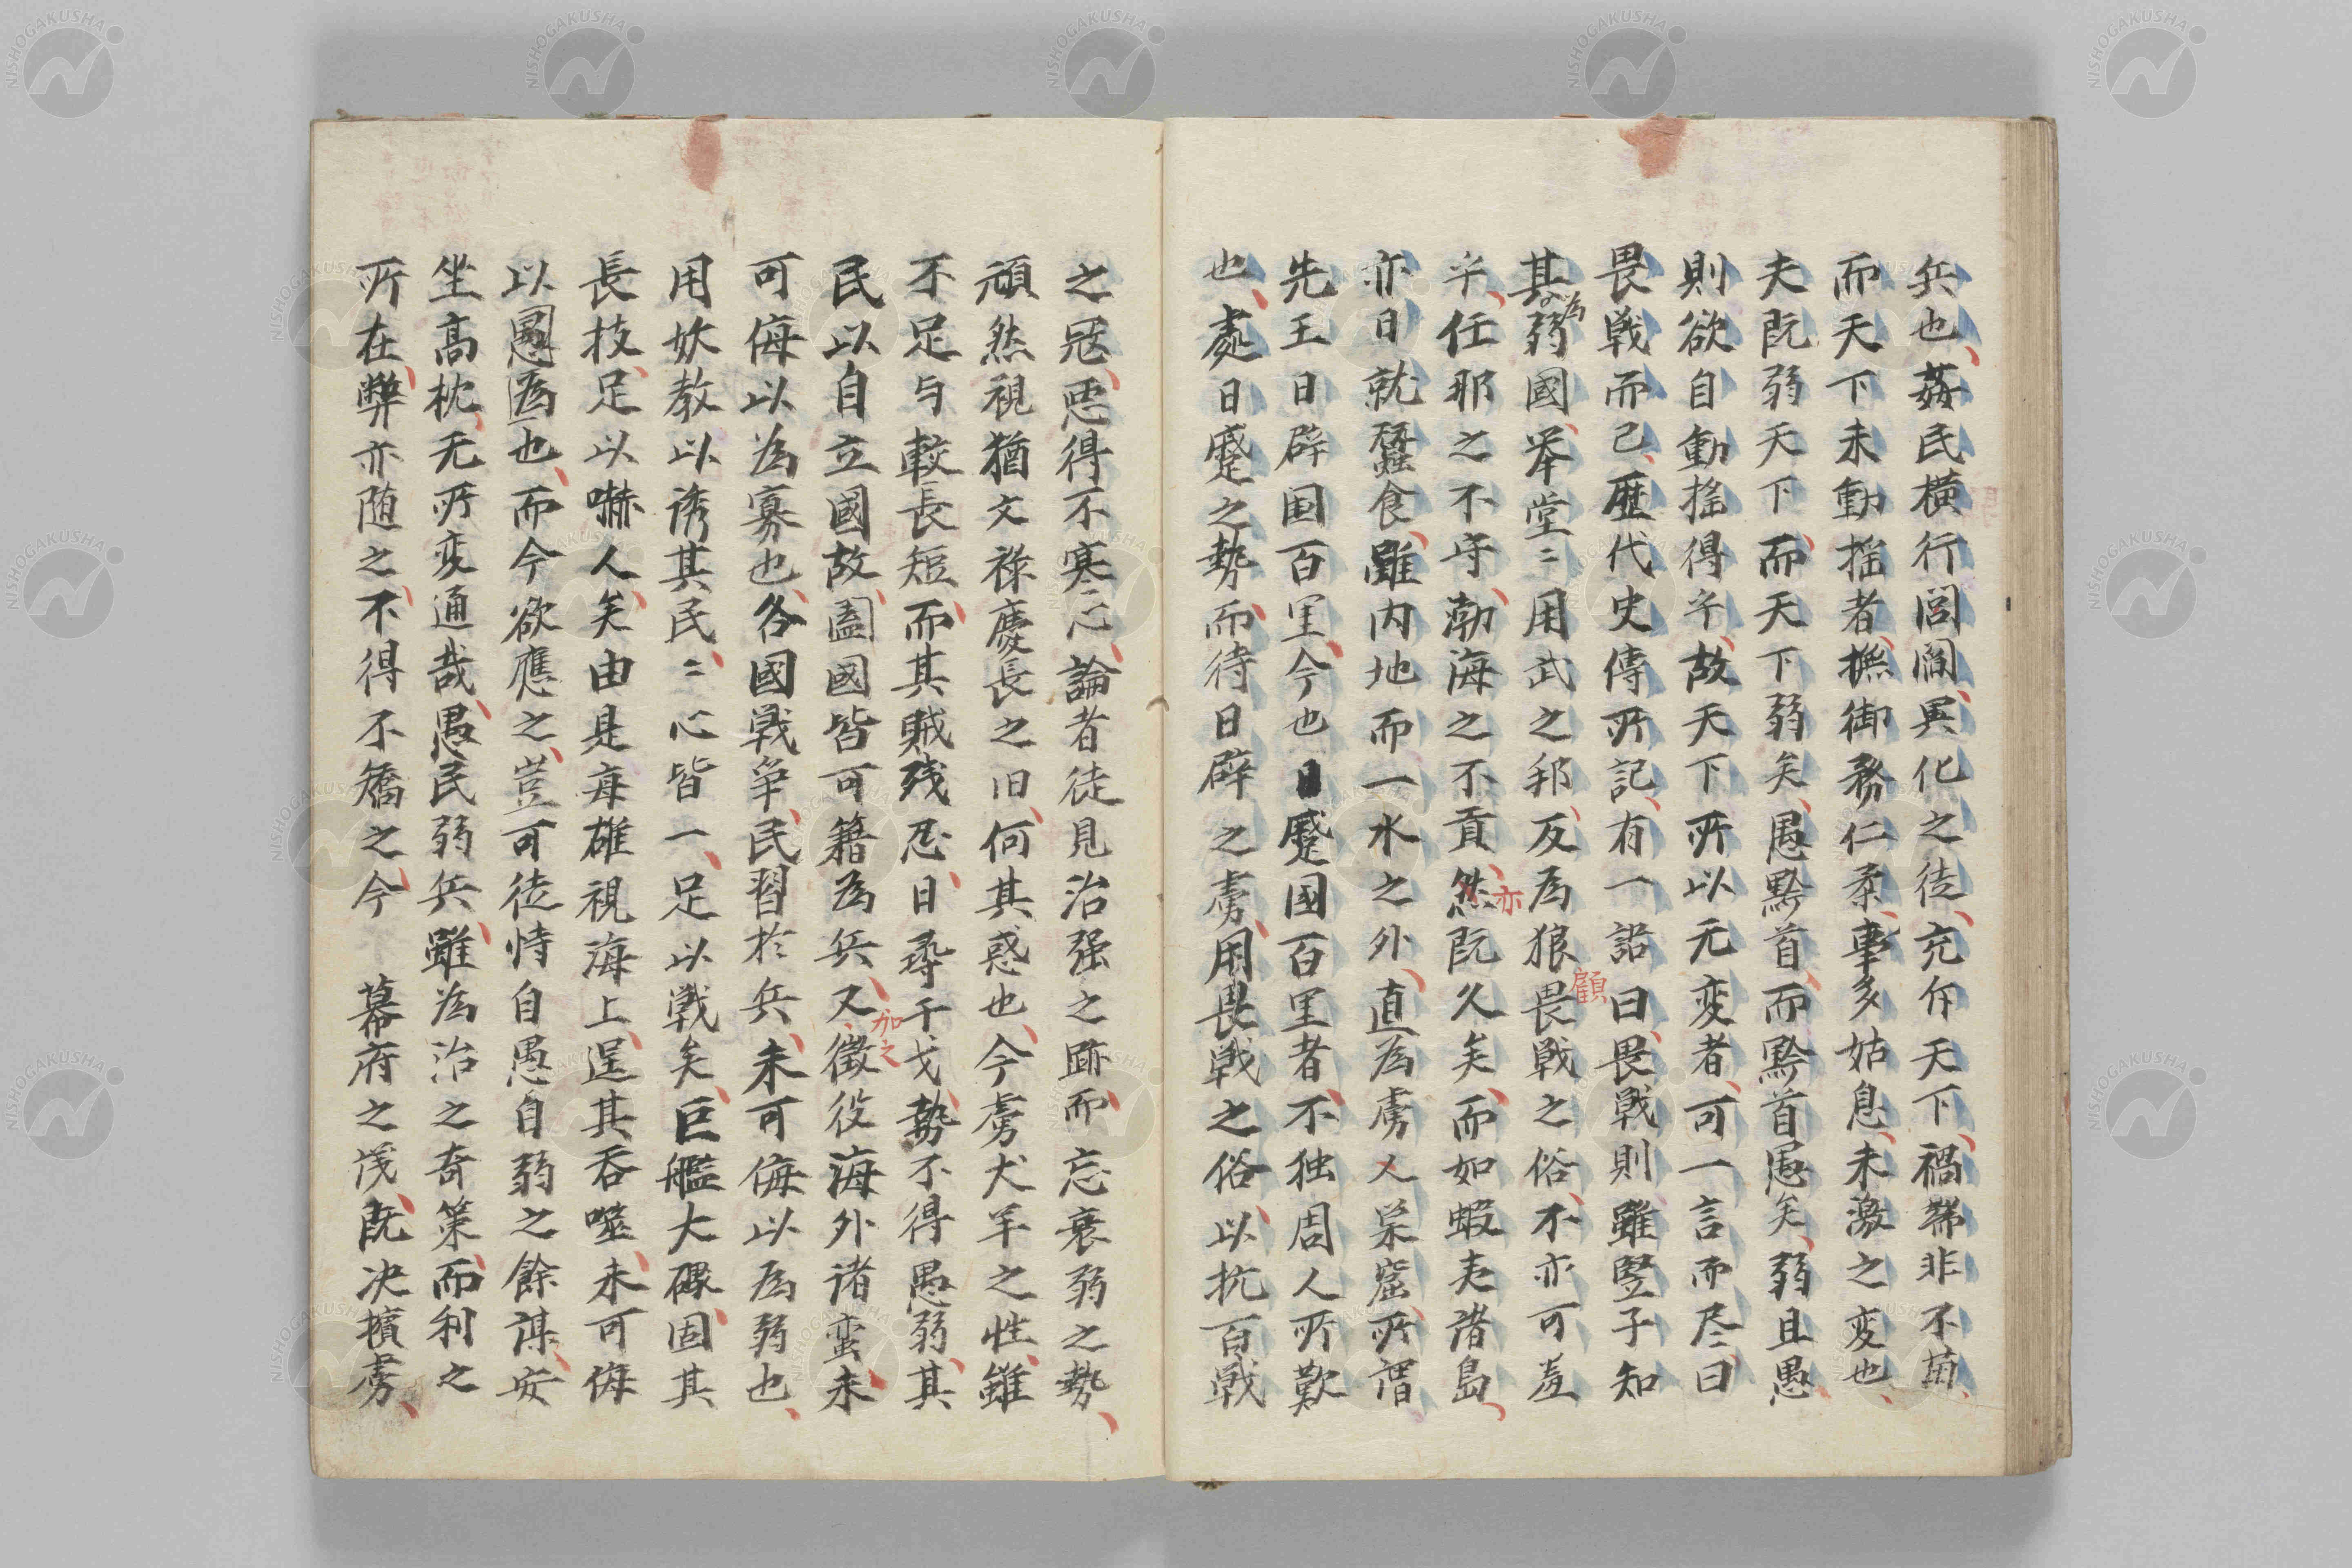 兵也姦民横行閭閻異化之徒充斥天下禍端非不萌
而天下未動揺者撫御務仁柔事多姑息未激之変也
夫既弱天下而天下弱矣愚黔首而黔首愚矣弱且愚
則欲自動揺得乎故天下所以无変者可一言而尽曰
畏戦而已歴代史傳所記有一詔曰畏戦則雖竪子知
其為弱國举堂〻用武之邦反為狼顧畏戦之俗不亦可羞
乎任那之不守渤海之不貢然亦既久矣而如蝦夷諸島
亦日就蠶食雖内地而一水之外直為虜人巣窟所謂
先王日辟国百里今也日蹙国百里者不独周人所歎
也處日蹙之勢而待日辟之虜用畏戦之俗以抗百戦
之寇悪得不寒心論者徒見治强之跡而忘衰弱之勢
頑然視猶文禄慶長之旧何其惑也今虜犬羊之性雖
不足与較長短而其賊残忍日尋干戈勢不得愚弱其
民以自立國故闔國皆可籍為兵又加之徴役海外诸蛮未
可侮以為寡也各國戦争民習於兵未可侮以為弱也
用妖教以誘其民〻心皆一足以戦矣巨艦大礮固其
長技足以嚇人矣由是毎雄視海上逞其呑噬未可侮
以愚為也而今欲應之豈可徒恃自愚自弱之餘謀安
坐高枕无所変通哉愚民弱兵雖為治之奇策而利之
所在弊亦随之不得不矯之今 幕府之議既决擯虜